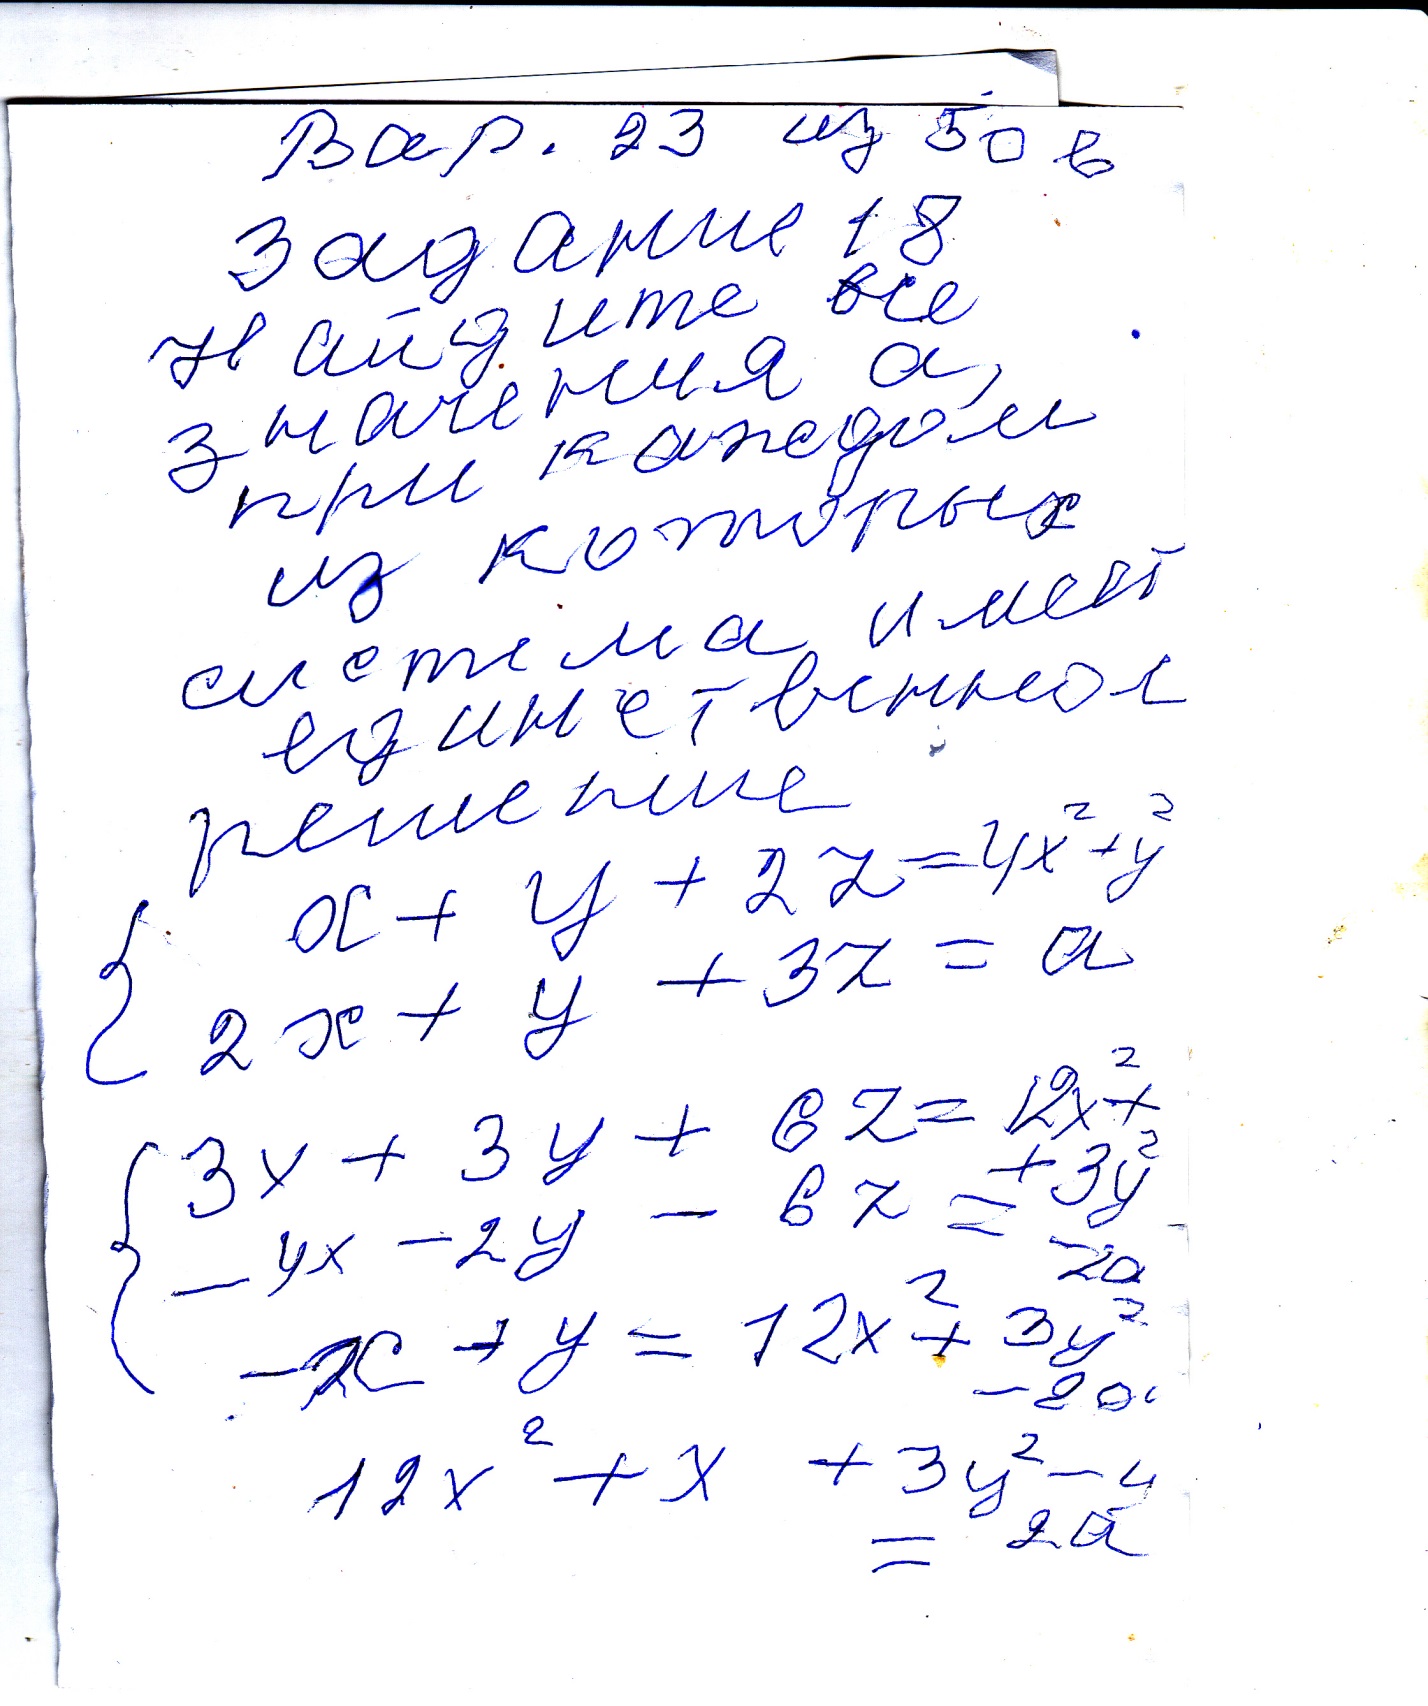 Вар. 23 из 50 в
Задание 18
Найдите все
значения а,
при каждом
из которых
система имеет
единственное
решение
x + y + 2z = 4x² + y²
2x + y + 3z = a
3x + 3y + 6z = 12x² +
+ 3y²
- 4x - 2y - 6z =
- 2a
- x + y = 12x² + 3y²
- 2a
12x² + x + 3y² - y
= 2a